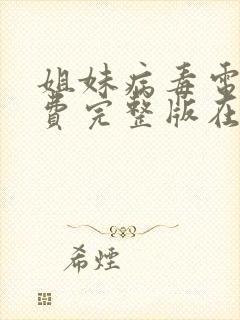 姐妹病毒电
费完整版在
希煙